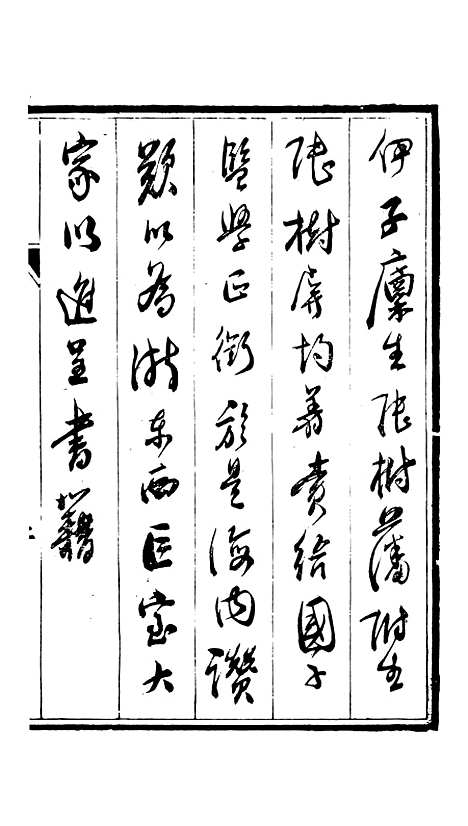 伊子廪生張樹藩附生
張樹屏均著賞給國子
監學正銜於是海內讚
歎以為浙東西巨室大
家以進呈書籍